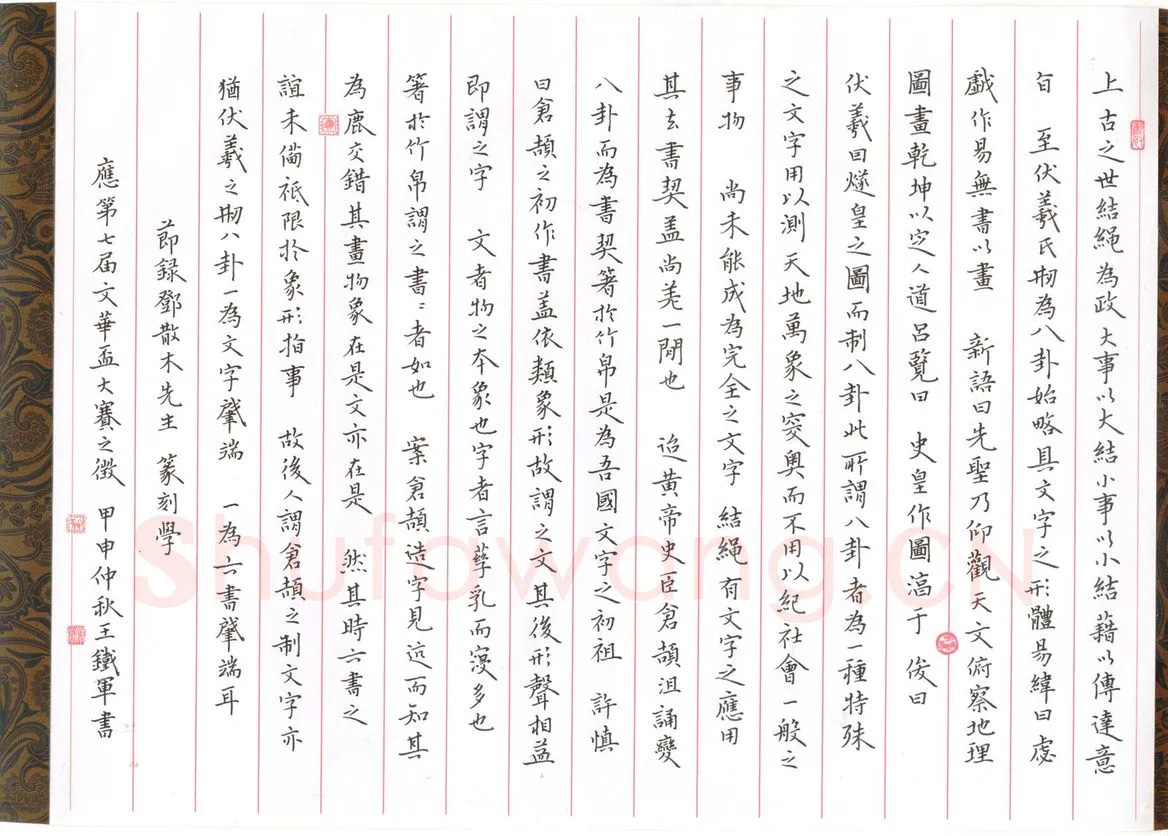 上古之世結繩為政大事以大結小事以小結藉以傳達意
旨 至伏羲氏刱為八卦始略具文字之形體易緯曰虙
戲作易無書以畫 新語曰先聖乃仰觀天文俯察地理
圖畫乾坤以定人道呂覽曰 史皇作圖 于俊曰
伏羲因燧皇之圖而制八卦此所謂八卦者為一種特殊
之文字用以測天地萬象之突奧而不用以紀社會一般之
事物 尚未能成為完全之文字 結繩有文字之應用
其去書契蓋尚差一間也 迨黃帝史臣倉頡沮誦變
八卦而為書契箸於竹帛是為吾國文字之初祖 許慎
曰倉頡之初作書蓋依類象形故謂之文其後形聲相益
即謂之字 文者物之本象也字者言孳乳而寖多也
箸於竹帛謂之書〻者如也 案倉頡造字見远而知其
為鹿交錯其畫物象在是文亦在是 然其時六書之
誼未備祇限於象形指事 故後人謂倉頡之制文字亦
猶伏羲之刱八卦一為文字肇端 一為六書肇端耳
節錄鄧散木先生 篆刻學
應第七届文華盃大賽之徵 甲申仲秋王鐵軍書
Shufawang.CN